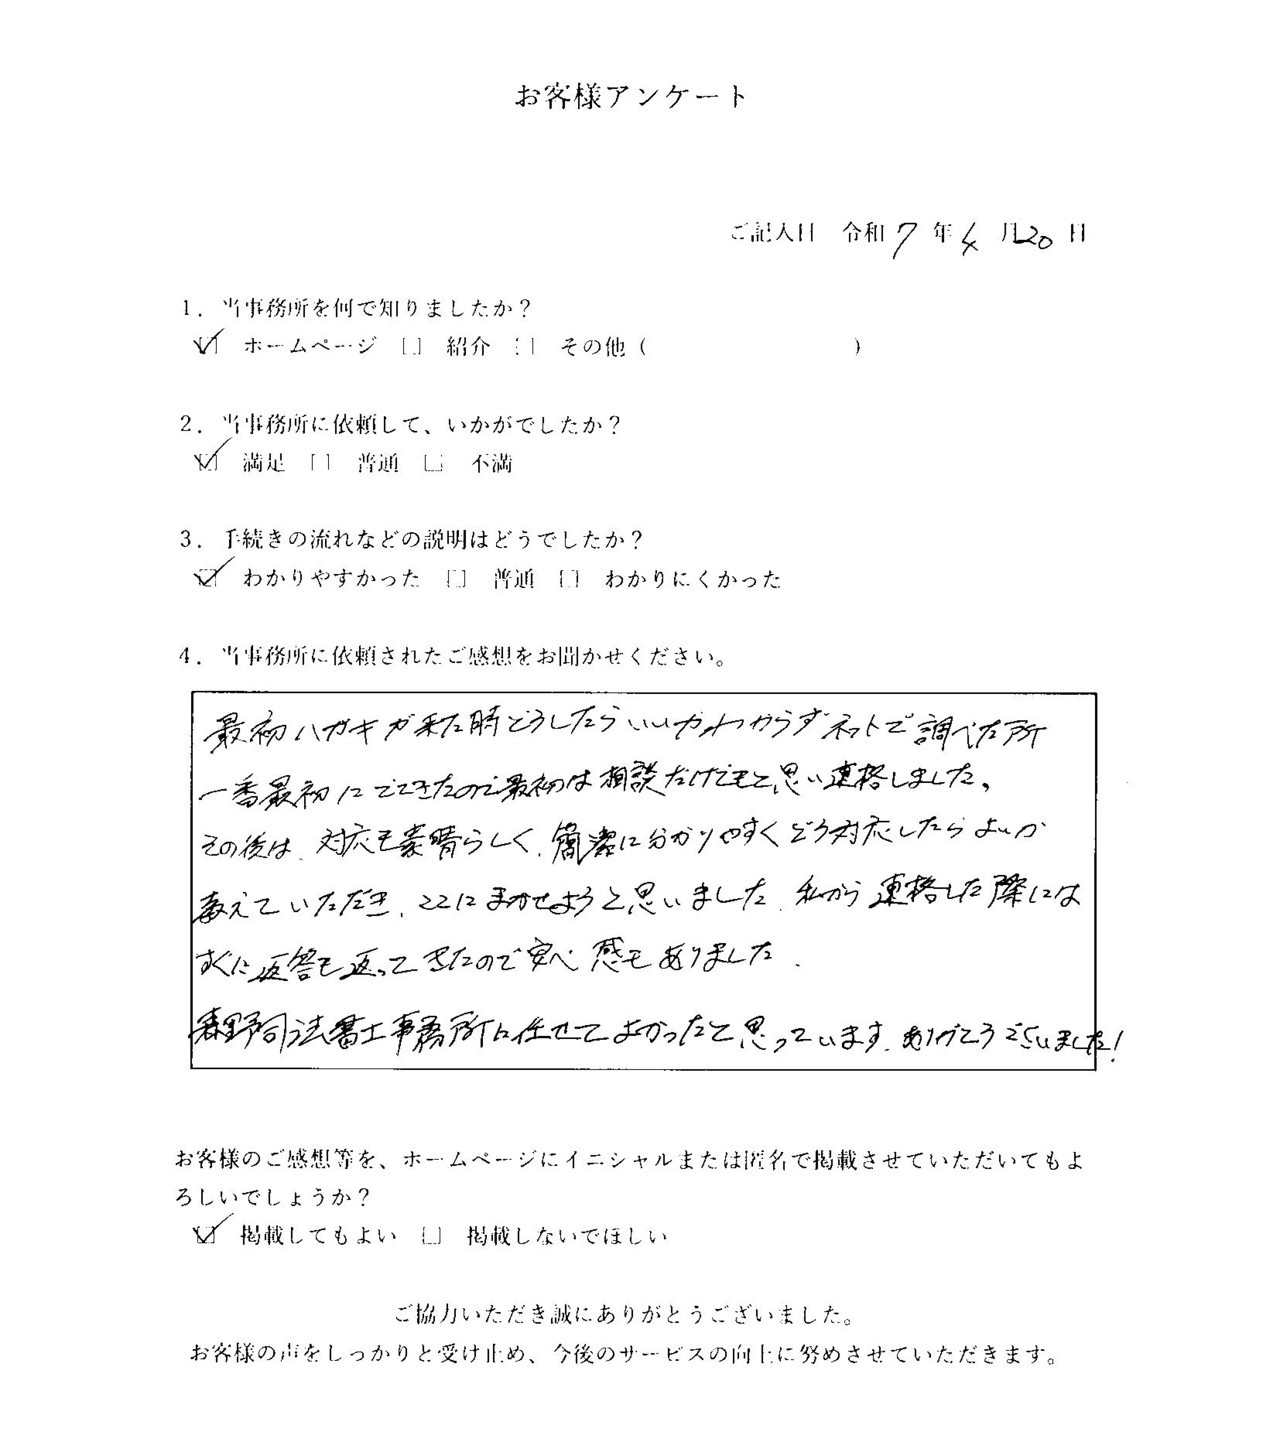 お客様アンケート
ご記入日 令和7年4月20日
1．当事務所を何で知りましたか？
☑ ホームページ □ 紹介 □ その他（ ）
2．当事務所に依頼して、いかがでしたか？
☑ 満足 □ 普通 □ 不満
3．手続きの流れなどの説明はどうでしたか？
☑ わかりやすかった □ 普通 □ わかりにくかった
4．当事務所に依頼されたご感想をお聞かせください。
最初ハガキが来た時どうしたらいいかわからずネットで調べた所
一番最初にでてきたので最初は相談だけでもと思い連絡しました。
その後は、対応も素晴らしく、簡潔に分かりやすくどう対応したらよいか
教えていただき、ここにまかせようと思いました。私から連絡した際には
すぐに返答も返ってきたので安心感もありました。
司法書士事務所に任せてよかったと思っています。ありがとうございました！
お客様のご感想等を、ホームページにイニシャルまたは匿名で掲載させていただいてもよ
ろしいでしょうか？
☑ 掲載してもよい □ 掲載しないでほしい
ご協力いただき誠にありがとうございました。
お客様の声をしっかりと受け止め、今後のサービスの向上に努めさせていただきます。